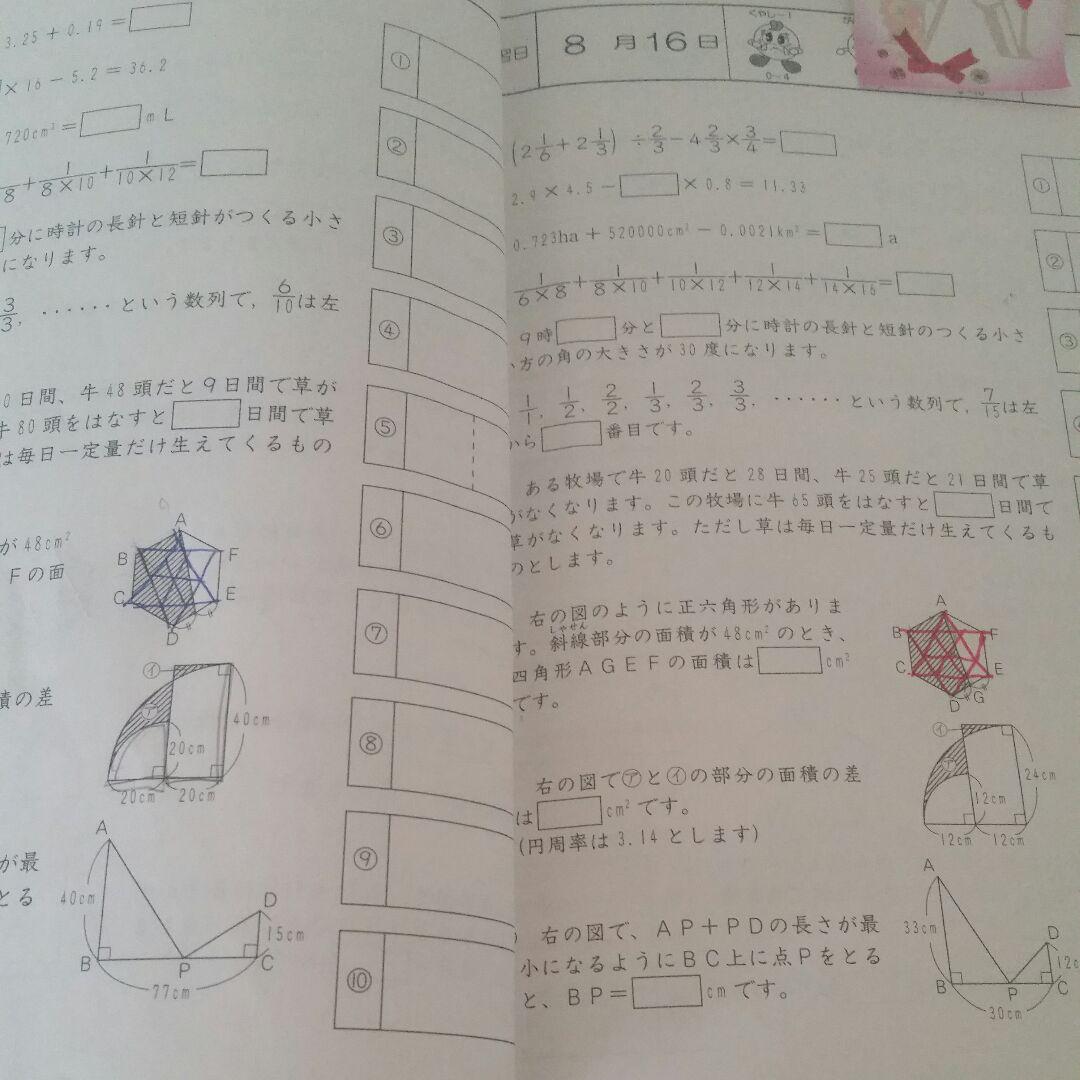 3.25 + 0.19 =
× 16 − 5.2 = 36.2
720cm² = mL
8 + 1/8×10 + 1/10×12 =
分に時計の長針と短針がつくる小さ
になります。
3/3, ······ という数列で, 6/10 は左
0日間、牛48頭だと9日間で草が
牛80頭をはなすと 日間で草
は毎日一定量だけ生えてくるもの
が48cm²
Fの面
A
B F
C E
D
積の差
㋑
㋐
40cm
20cm
20cm 20cm
が最
とる
A
40cm
D
15cm
B P C
77cm
①
②
③
④
⑤
⑥
⑦
⑧
⑨
⑩
習日 8月16日
くやし〜!
0〜4
(2 1/6 + 2 1/3) ÷ 2/3 − 4 2/3 × 3/4 =
2.9 × 4.5 − × 0.8 = 11.33
0.723ha + 520000cm² − 0.0021km² = a
1/6×8 + 1/8×10 + 1/10×12 + 1/12×14 + 1/14×16 =
9時 分と 分に時計の長針と短針のつくる小さ
い方の角の大きさが30度になります。
1/1, 1/2, 2/2, 1/3, 2/3, 3/3, ······ という数列で, 7/15 は左
から 番目です。
ある牧場で牛20頭だと28日間、牛25頭だと21日間で草
がなくなります。この牧場に牛65頭をはなすと 日間で
草がなくなります。ただし草は毎日一定量だけ生えてくるも
のとします。
右の図のように正六角形がありま
しゃせん
す。斜線部分の面積が48cm²のとき、
四角形AGEFの面積は cm²
です。
A
B F
C E
D G
右の図で㋐と㋑の部分の面積の差
は cm²です。
(円周率は3.14とします)
㋑
㋐
24cm
12cm
12cm 12cm
右の図で、AP+PDの長さが最
小になるようにBC上に点Pをとる
と、BP= cmです。
A
33cm
D
12c
B P C
30cm
①
②
③